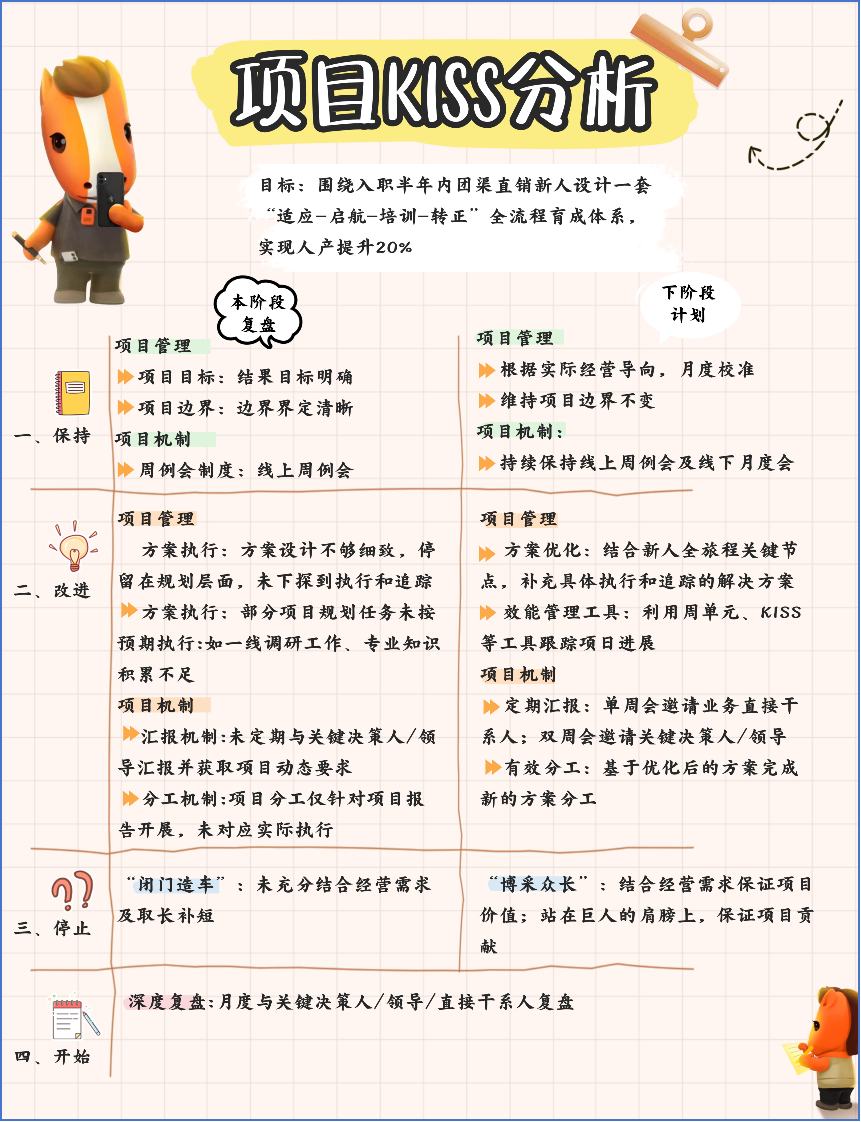 项目KISS分析
目标：围绕入职半年内团渠直销新人设计一套
“适应-启航-培训-转正”全流程育成体系，
实现人产提升20%
本阶段
复盘
下阶段
计划
一、保持
项目管理
项目目标：结果目标明确
项目边界：边界界定清晰
项目机制
周例会制度：线上周例会
项目管理
根据实际经营导向，月度校准
维持项目边界不变
项目机制：
持续保持线上周例会及线下月度会
二、改进
项目管理
方案执行：方案设计不够细致，停
留在规划层面，未下探到执行和追踪
方案执行：部分项目规划任务未按
预期执行:如一线调研工作、专业知识
积累不足
项目机制
汇报机制:未定期与关键决策人/领
导汇报并获取项目动态要求
分工机制:项目分工仅针对项目报
告开展，未对应实际执行
项目管理
方案优化：结合新人全旅程关键节
点，补充具体执行和追踪的解决方案
效能管理工具：利用周单元、KISS
等工具跟踪项日进展
项目机制
定期汇报：单周会邀请业务直接干
系人；双周会邀请关键决策人/领导
有效分工：基于优化后的方案完成
新的方案分工
三、停止
“闭门造车”：未充分结合经营需求
及取长补短
“博采众长”：结合经营需求保证项目
价值；站在巨人的肩膀上，保证项目贡
献
四、开始
深度复盘:月度与关键决策人/领导/直接干系人复盘